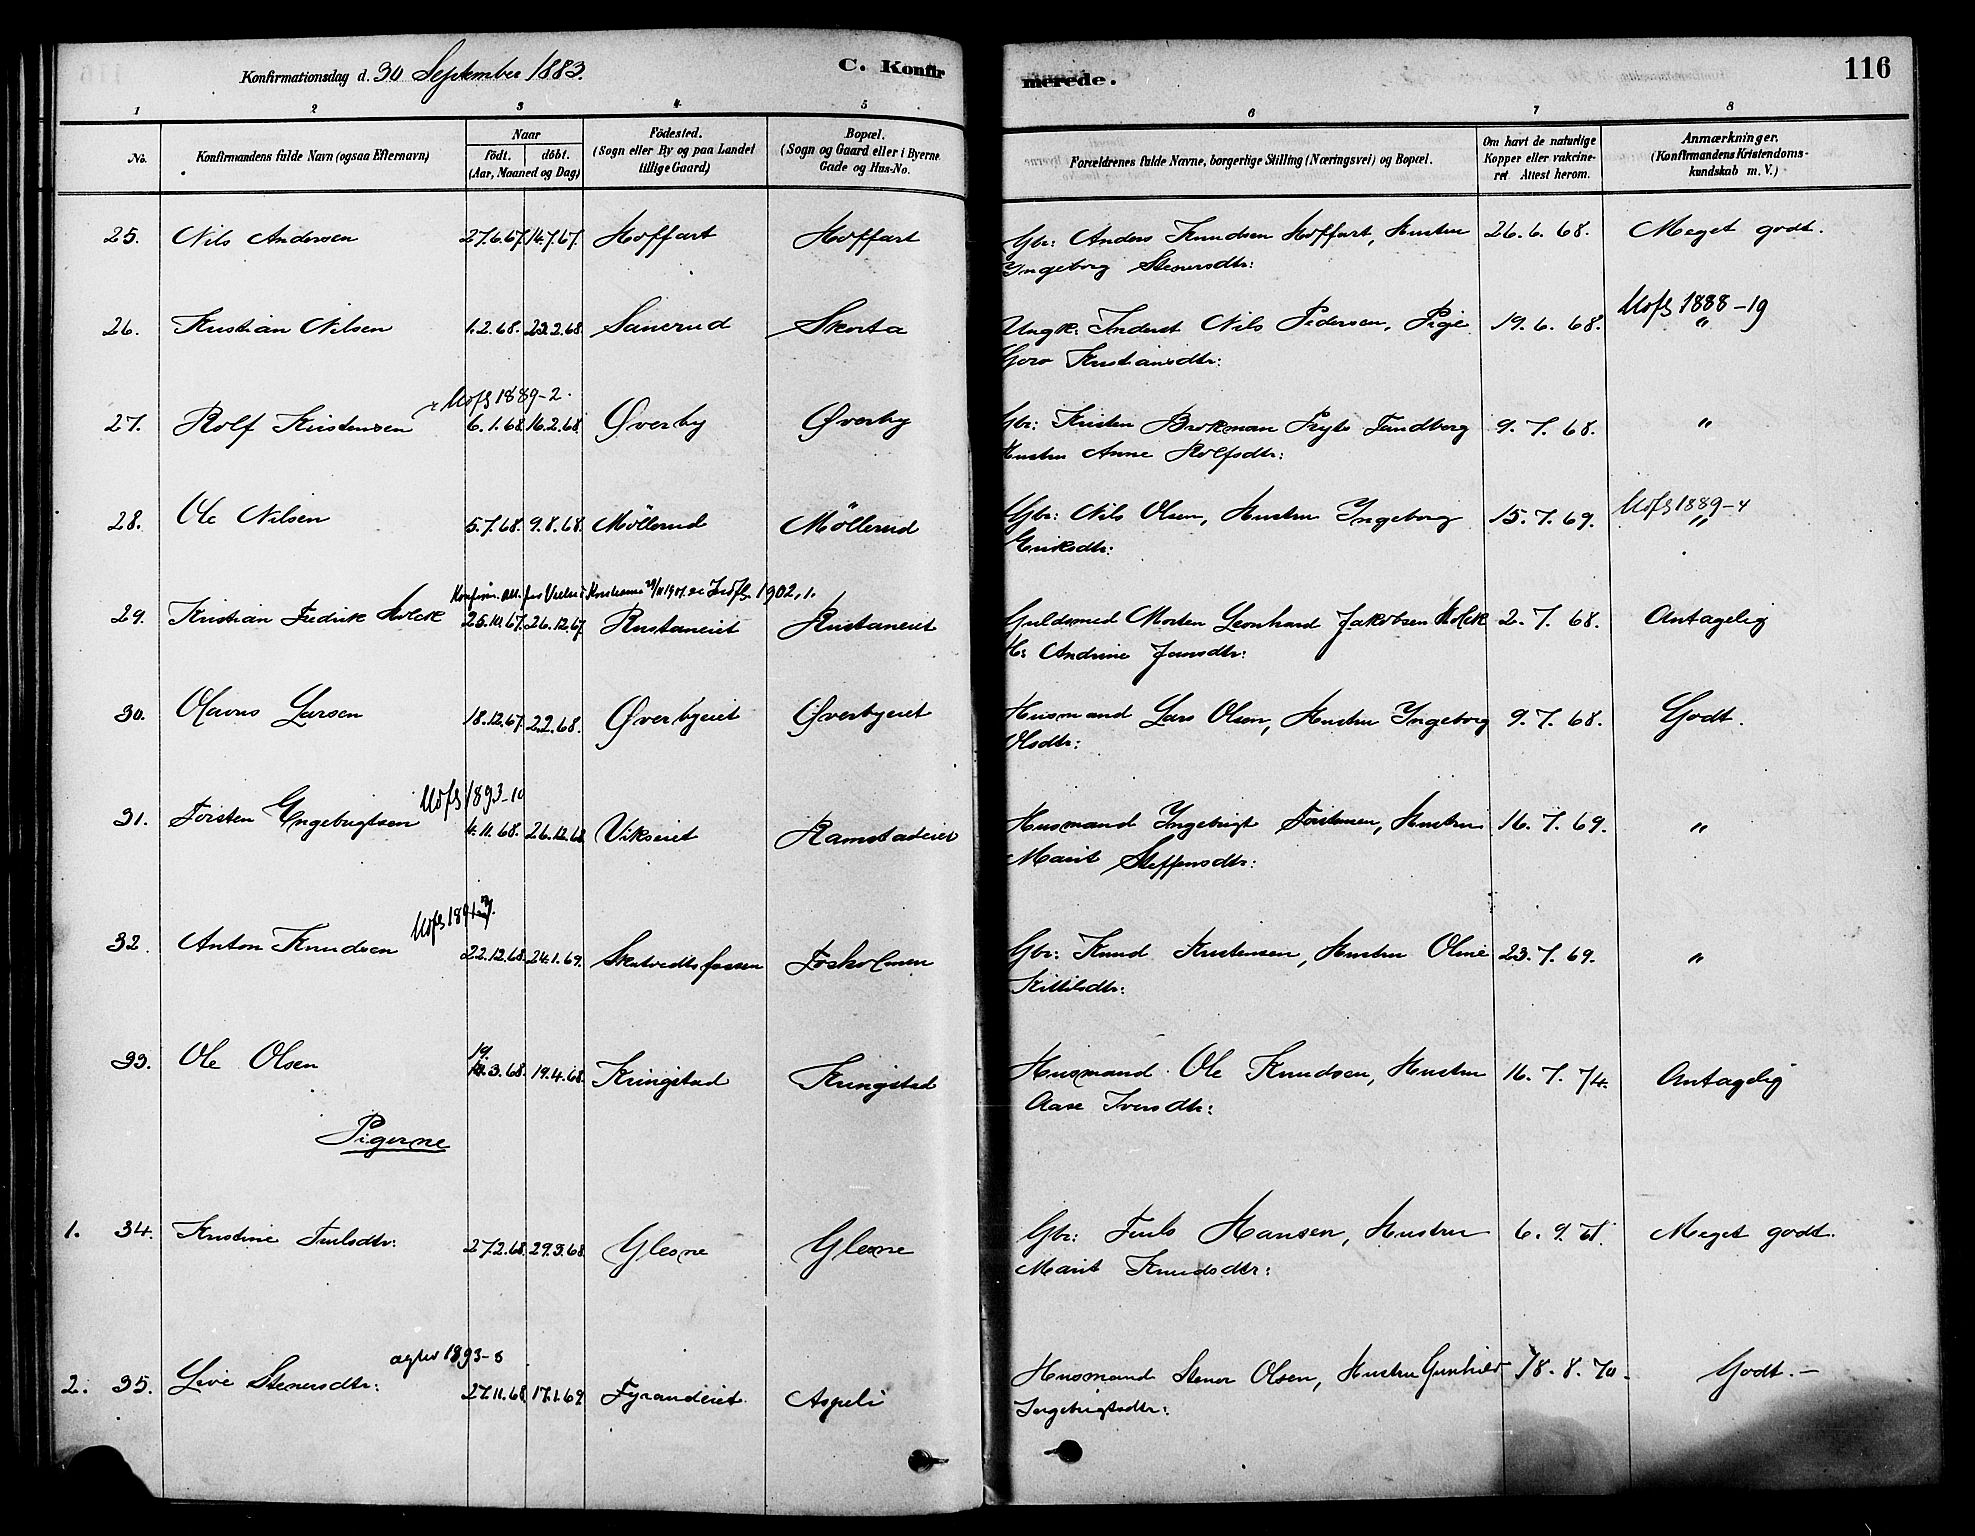 Konfirmationsdag d. 30 September 1883.
C. Konfir
merede.
116
1 2 3 4 5 6 7 8
No.
Konfirmandens fulde Navn (ogsaa Efternavn)
Naar
födt. döbt.
(Aar, Maaned og Dag)
Födested.
(Sogn eller By og paa Landet
tillige Gaard)
Bopæl.
(Sogn og Gaard eller i Byerne
Gade og Hus-No.
Forældrenes fulde Navne, borgerlige Stilling (Næringsvei) og Bopæl.
Om havt de naturlige
Kopper eller vakcine-
ret Attest herom.
Anmærkninger.
(Konfirmandens Kristendoms-
kundskab m. V.)
25. Nils Andersen 27.6.67. 14.7.67. Hoffart Hoffart Gbr: Anders Knudsen Hoffart, Hustru 26.6.68. Meget godt.
Ingeborg Stenersdtr:
Udfl 1888-19
26. Kristian Nilsen 1.2.68. 23.2.68. Sanerud Skorta Ungk: Inderst Nils Pedersen, Pige 19.6.68. "
Goro Kristiansdtr:
Udfl 1889-2.
27. Rolf Kristensen 6.1.68. 16.2.68. Øverby Øverby Gbr: Kristen Brokman Tandberg 9.7.68. "
Hustru Anne Rolfsdtr:
Udfl 1889-4
28. Ole Nilsen 5.7.68. 9.8.68. Möllerud Möllerud Gbr: Nils Olsen, Hustru Ingeborg 15.7.69. "
Eriksdtr:
1902, 1.
29. Kristian Fredrik Holck 25.10.67. 26.12.67. Rustaneiet Rustaneiet Guldsmed Morten Leonhard Jakobsen Holck 2.7.68. Antagelig
H: Andrine Jansdtr:
30. Olavus Larsen 18.12.67. 2.2.68. Øverbyeiet Øverbyeiet Husmand Lars Olsen, Hustru Ingeborg 9.7.68. Godt.
Olsdtr:
Udfl 1893-10
31. Torsten Engebrigtsen 4.11.68. 26.12.68 Vikseiet Ramstadeiet Husmand Ingebrigt Torstensen, Hustru 16.7.69. "
Marit Steffensdtr:
Udfl 1891
32. Anton Knudsen 22.12.68. 24.1.69. Skatvedtsfossen Foskolmen Gbr: Knud Kristensen, Hustru Oline 23.7.69. "
Kittilsdtr:
33. Ole Olsen 19.3.68. 19.4.68. Kringstad Kringstad Husmand Ole Knudsen, Hustru 16.7.74. Antagelig
Aase Iversdtr:
Pigerne
1. 34. Kristine Trulsdtr: 27.2.68. 29.3.68 Glesne Glesne Gbr: Truls Hansen, Hustru 6.9.71. Meget godt.
Marit Knudsdtr:
1893-8
2. 35. Live Stenersdtr: 27.11.68. 17.1.69 Fyrandeiet Aspeli Husmand Stener Olsen, Hustru Gunhild 18.8.70. Godt.-
Ingebrigtsdtr: